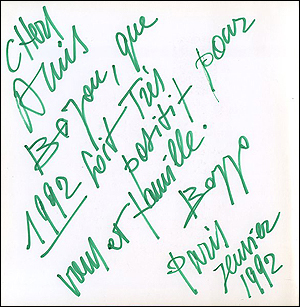 CHers
Amis
que
1992 soit Très
positif pour
vous et famille.
Bozzo
Paris
Janvier
1992